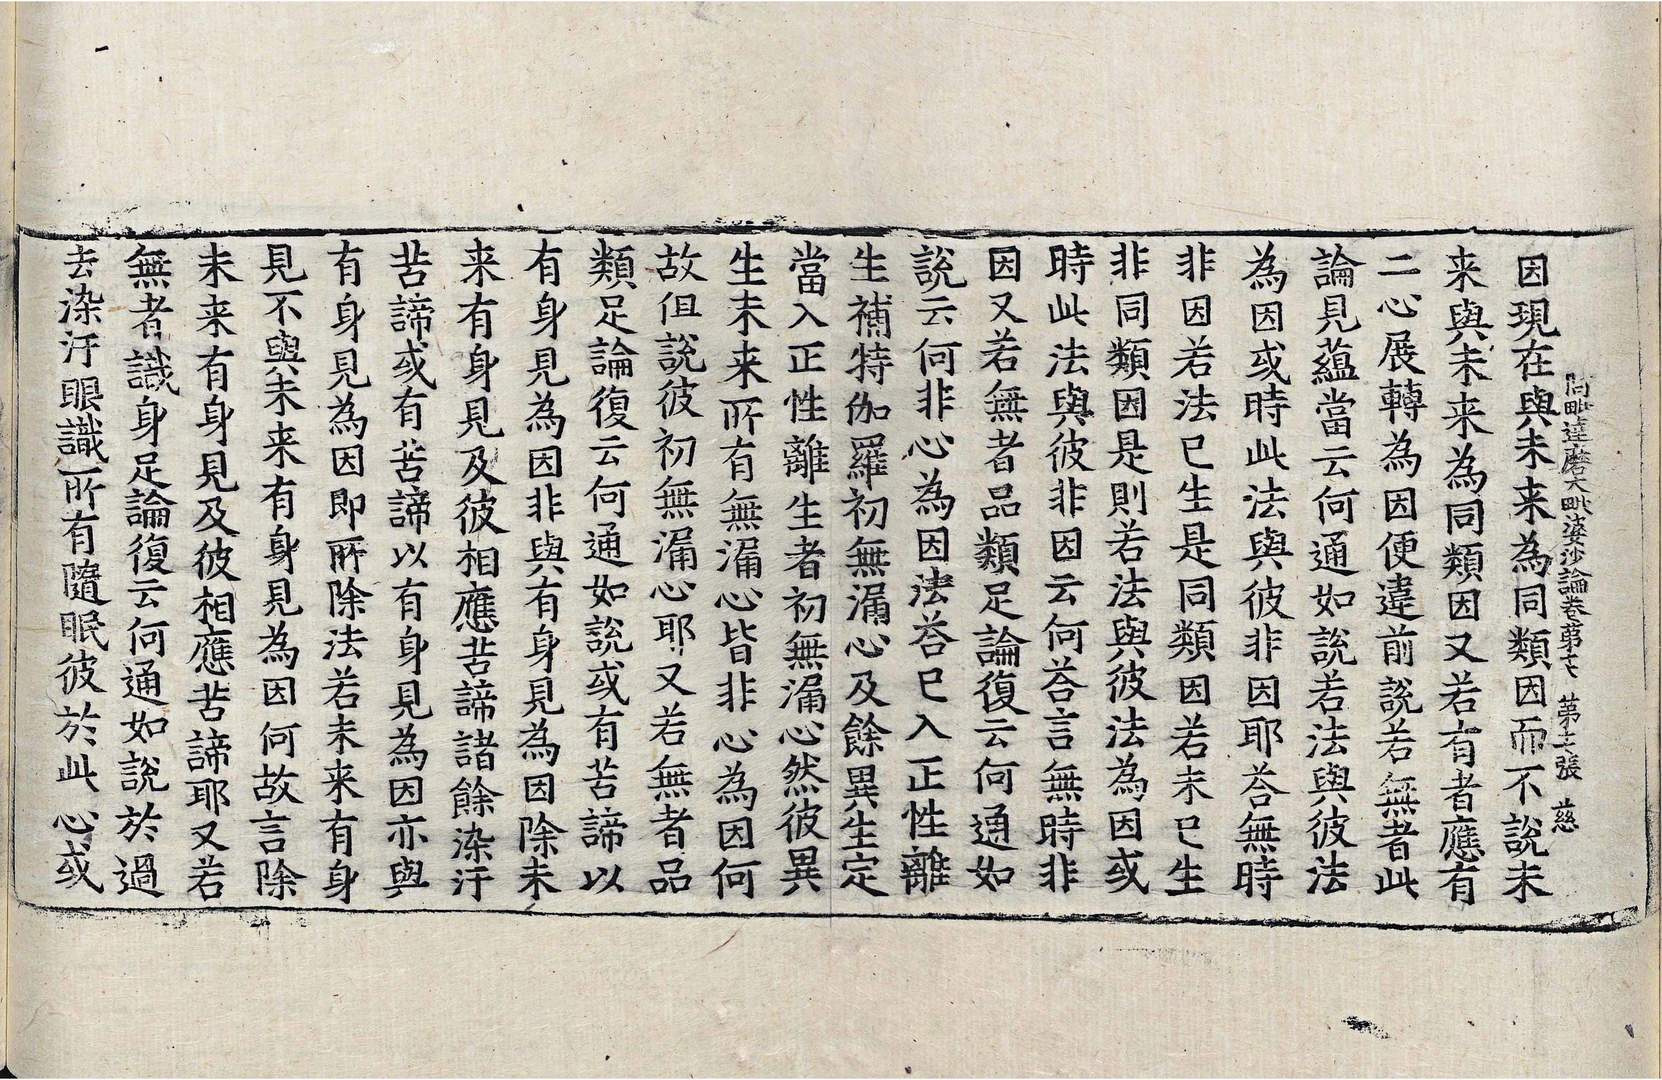 阿毗達磨大毗婆沙論卷第十七　第十七張　慈
因現在與未来為同類因而不說未
来與未来為同類因又若有者應有
二心展轉為因便違前說若無者此
論見蘊當云何通如說若法與彼法
為因或時此法與彼非因耶荅無時
非因若法已生是同類因若未已生
非同類因是則若法與彼法為因或
時此法與彼非因云何荅言無時非
因又若無者品類足論復云何通如
說云何非心為因法荅已入正性離
生補特伽羅初無漏心及餘異生定
當入正性離生者初無漏心然彼異
生未来所有無漏心皆非心為因何
故但說彼初無漏心耶又若無者品
類足論復云何通如說或有苦諦以
有身見為因非與有身見為因除未
来有身見及彼相應苦諦諸餘染汙
苦諦或有苦諦以有身見為因亦與
有身見為因即所除法若未来有身
見不與未来有身見為因何故言除
未来有身見及彼相應苦諦耶又若
無者識身足論復云何通如說於過
去染汙眼識所有隨眠彼於此心或